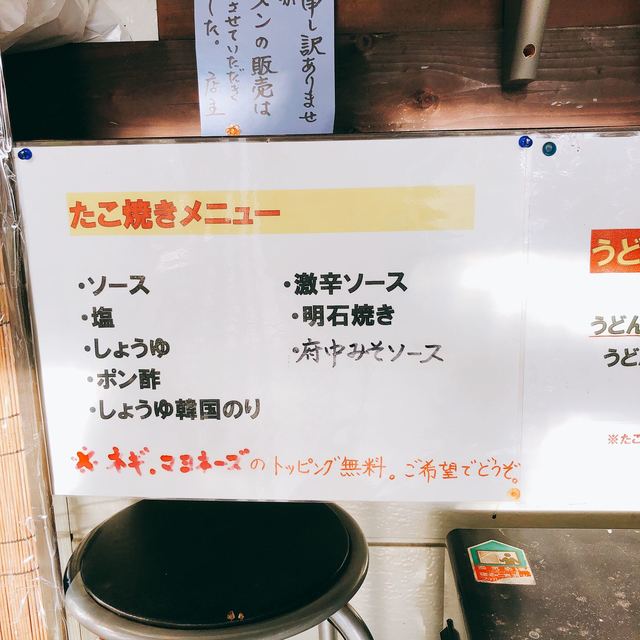 申し訳ありませ
メンの販売は
させていただき
した。
店主
たこ焼きメニュー
・ソース
・塩
・しょうゆ
・ポン酢
・しょうゆ韓国のり
・激辛ソース
・明石焼き
・府中みそソース
※ネギ。マヨネーズのトッピング無料。ご希望でどうぞ。
うど
うどん
うど
※たこ